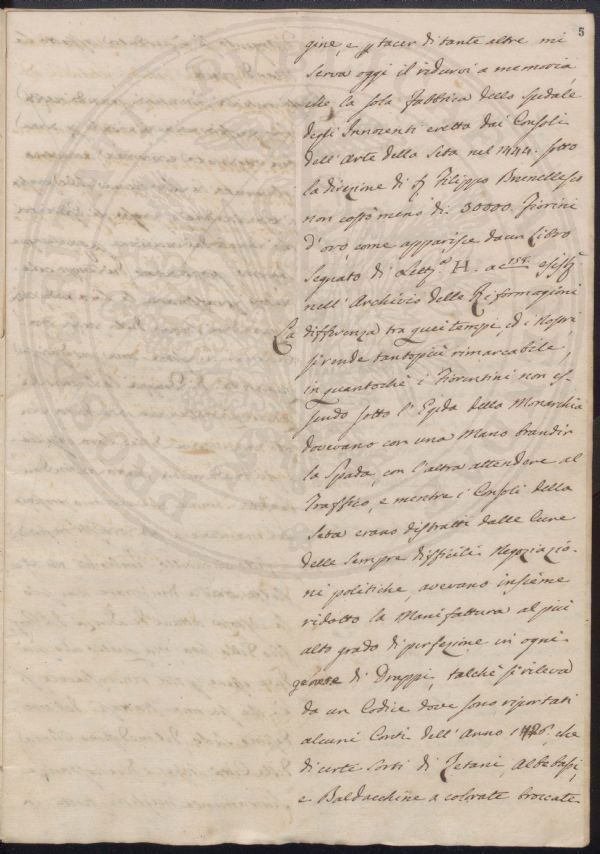 5
gine, e p tacer di tante altre mi
serva oggi il ridurvi a memoria,
che la sola fabbrica dello spedale
degli Innocenti eretto dai Consoli
dell'Arte della Seta nel 1444. sotto
la direzione di Filippo Brunellesco
non costò meno di 30000. Fiorini
d'oro, come apparisce da un Libro
Segnato di Lett.a H. a c
nell'Archivio delle Riformagioni
La differenza tra quei tempi, ed i Nostri
si rende tanto più rimarcabile,
in quantochè i Fiorentini non es-
sendo sotto l'Egida della Monarchia
dovevano con una Mano brandir
la Spada, con l'altra attendere al
Traffico, e mentre i Consoli della
Seta erano distratti dalle Cure
delle sempre difficili Negoziazio-
ni politiche, avevano insieme
ridotto la Manifattura al più
alto grado di perfezione in ogni
genere di Drappi, talchè si rileva
da un Codice dove sono riportati
alcuni Conti dell'Anno che
di certe sorti di Zetani, Albebassi,
e Baldacchine a colorate broccate